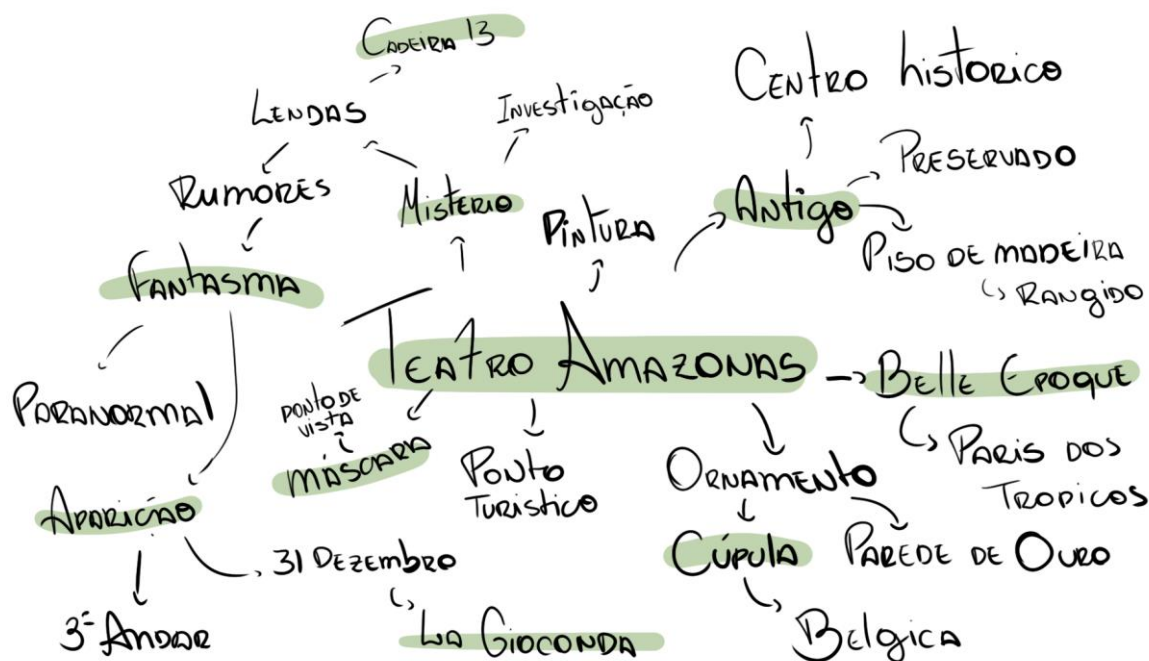 CADEIRA 13
LENDAS
INVESTIGAÇÃO
CENTRO historico
RUMORES
MISTERIO
PINTURA
ANTIGO
PRESERVADO
PISO DE MADEIRA
RANGIDO
FANTASMA
TEATRO AMAZONAS
BELLE EPOQUE
PARANORMAL
PONTO DE
VISTA
MÁSCARA
PONTO
TURISTICO
ORNAMENTO
PARIS DOS
TROPICOS
APARIÇÃO
31 DEZEMBRO
CÚPULA
PAREDE DE OURO
3º ANDAR
LA GIOCONDA
BELGICA